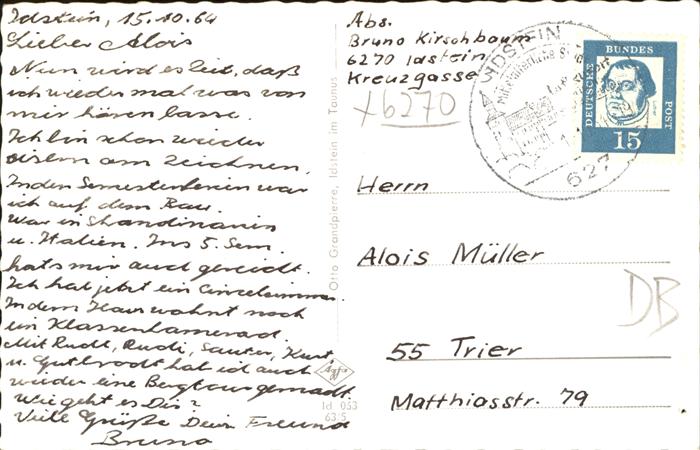 Idstein, 15.10.64
Lieber Alois
Nun wird es Zeit, daß
ich wieder mal was von
mir hören lasse.
Ich bin schon wieder
eisern am Zeichnen.
In den Semesterferien war
ich auf dem Bau.
War in Skandinavien
u. Italien. Ins 5. Sem.
hat's mir auch gereicht.
Ich hab jetzt ein Einzelzimmer.
In dem Haus wohnt noch
ein Klassenkamerad.
Mit Rudi, Sauter, Kurt,
u. Gutbrodt hab ich auch
wieder eine Bergtour gemacht.
Wie geht es Dir?
Viele Grüße Dein Freund
Bruno
Otto Grandpierre, Idstein im Taunus
Agfa
Id. 053
63/5
Abs.
Bruno Kirschbaum
6270 Idstein
Kreuzgasse
+6270
IDSTEIN
627
DEUTSCHE BUNDESPOST
15
Herrn
Alois Müller
DB
55 Trier
Matthiasstr. 79